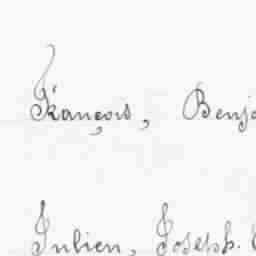 François, Benj
Julien, Joseph.